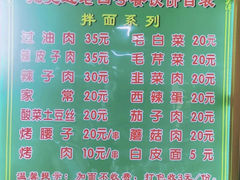 拌面系列
过油肉 35元 毛白菜 20元
蘑皮子肉 35元 毛芹菜 20元
辣子肉 30元 韭菜肉 20元
家常 20元 西辣蛋 20元
酸菜土豆丝 20元 茄子肉 20元
烤腰子 20元/串 蘑菇肉 20元
烤肉 10元/串 白皮面 5元